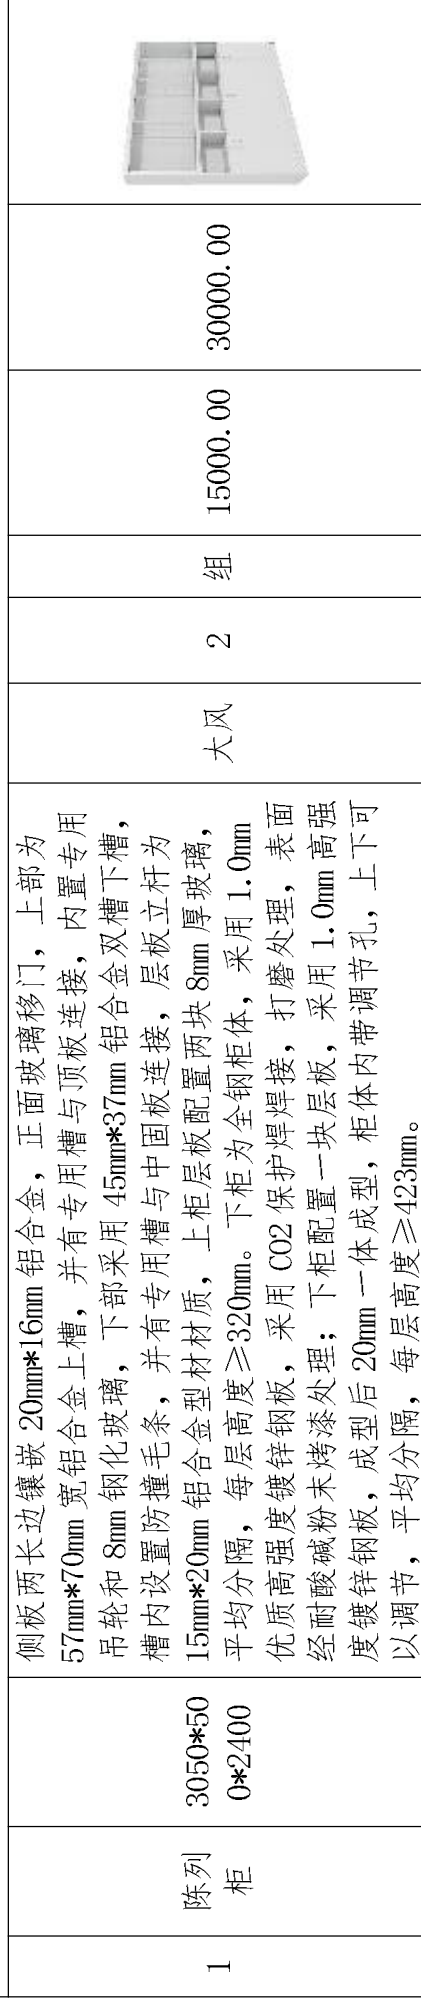 1
陈列
柜
3050*50
0*2400
侧板两长边镶嵌 20mm*16mm 铝合金，正面玻璃移门，上部为
57mm*70mm 宽铝合金上槽，并有专用槽与顶板连接，内置专用
吊轮和 8mm 钢化玻璃，下部采用 45mm*37mm 铝合金双槽下槽，
槽内设置防撞毛条，并有专用槽与中固板连接，层板立杆为
15mm*20mm 铝合金型材材质，上柜层板配置两块 8mm 厚玻璃，
平均分隔，每层高度≥320mm。下柜为全钢柜体，采用 1.0mm
优质高强度镀锌钢板，采用 CO2 保护焊焊接，打磨处理，表面
经耐酸碱粉末烤漆处理；下柜配置一块层板，采用 1.0mm 高强
度镀锌钢板，成型后 20mm 一体成型，柜体内带调节孔，上下可
以调节，平均分隔，每层高度≥423mm。
大风
2
组
15000.00
30000.00